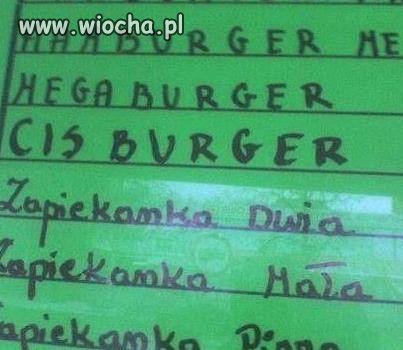 www.wiocha.pl
HAMBURGER
MEGA BURGER
CIS BURGER
Zapiekanka Duża
Zapiekanka Mała
Zapiekanka